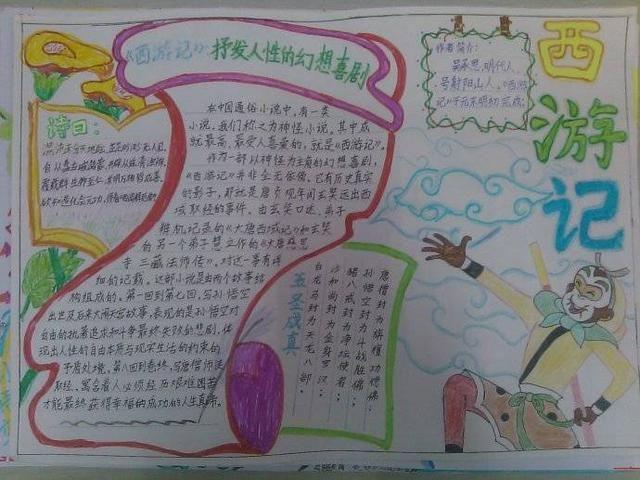 《西游记》：抒发人性的幻想喜剧
西游记
作者简介：
吴承恩，明代人，
号射阳山人，《西游
记》于元末明初完成。
诗曰：
在中国通俗小说中，有一类
小说，我们称之为神怪小说，其中成
就最高，最受人喜爱的，就是《西游记》。
作为一部以神怪为主角的幻想喜剧，
《西游记》并非全无依傍，它有历史真实
的影子，那就是唐贞观年间玄奘远出西
域取经的事件，由玄奘口述，弟子
辩机记录的《大唐西域记》和玄奘
的另一个弟子慧立作的《大唐慈恩
寺三藏法师传》，对这一事有详
细的记载。这部小说是由两个故事结
构组成的，第一回到第七回，写孙悟空
出世及后来大闹天宫故事，表现的是孙悟空对
自由的执著追求和斗争最终失败的悲剧，体
现出人性的自由本质与现实生活的约束的
矛盾处境。第八回到卷终，写唐僧师徒
取经，寓含着人必须经历艰难困苦
才能最终获得幸福的成功的人生真谛。
五圣成真
唐僧封为旃檀功德佛；
孙悟空封为斗战胜佛；
猪八戒封为净坛使者；
沙和尚封为金身罗汉；
白龙马封为天龙八部；